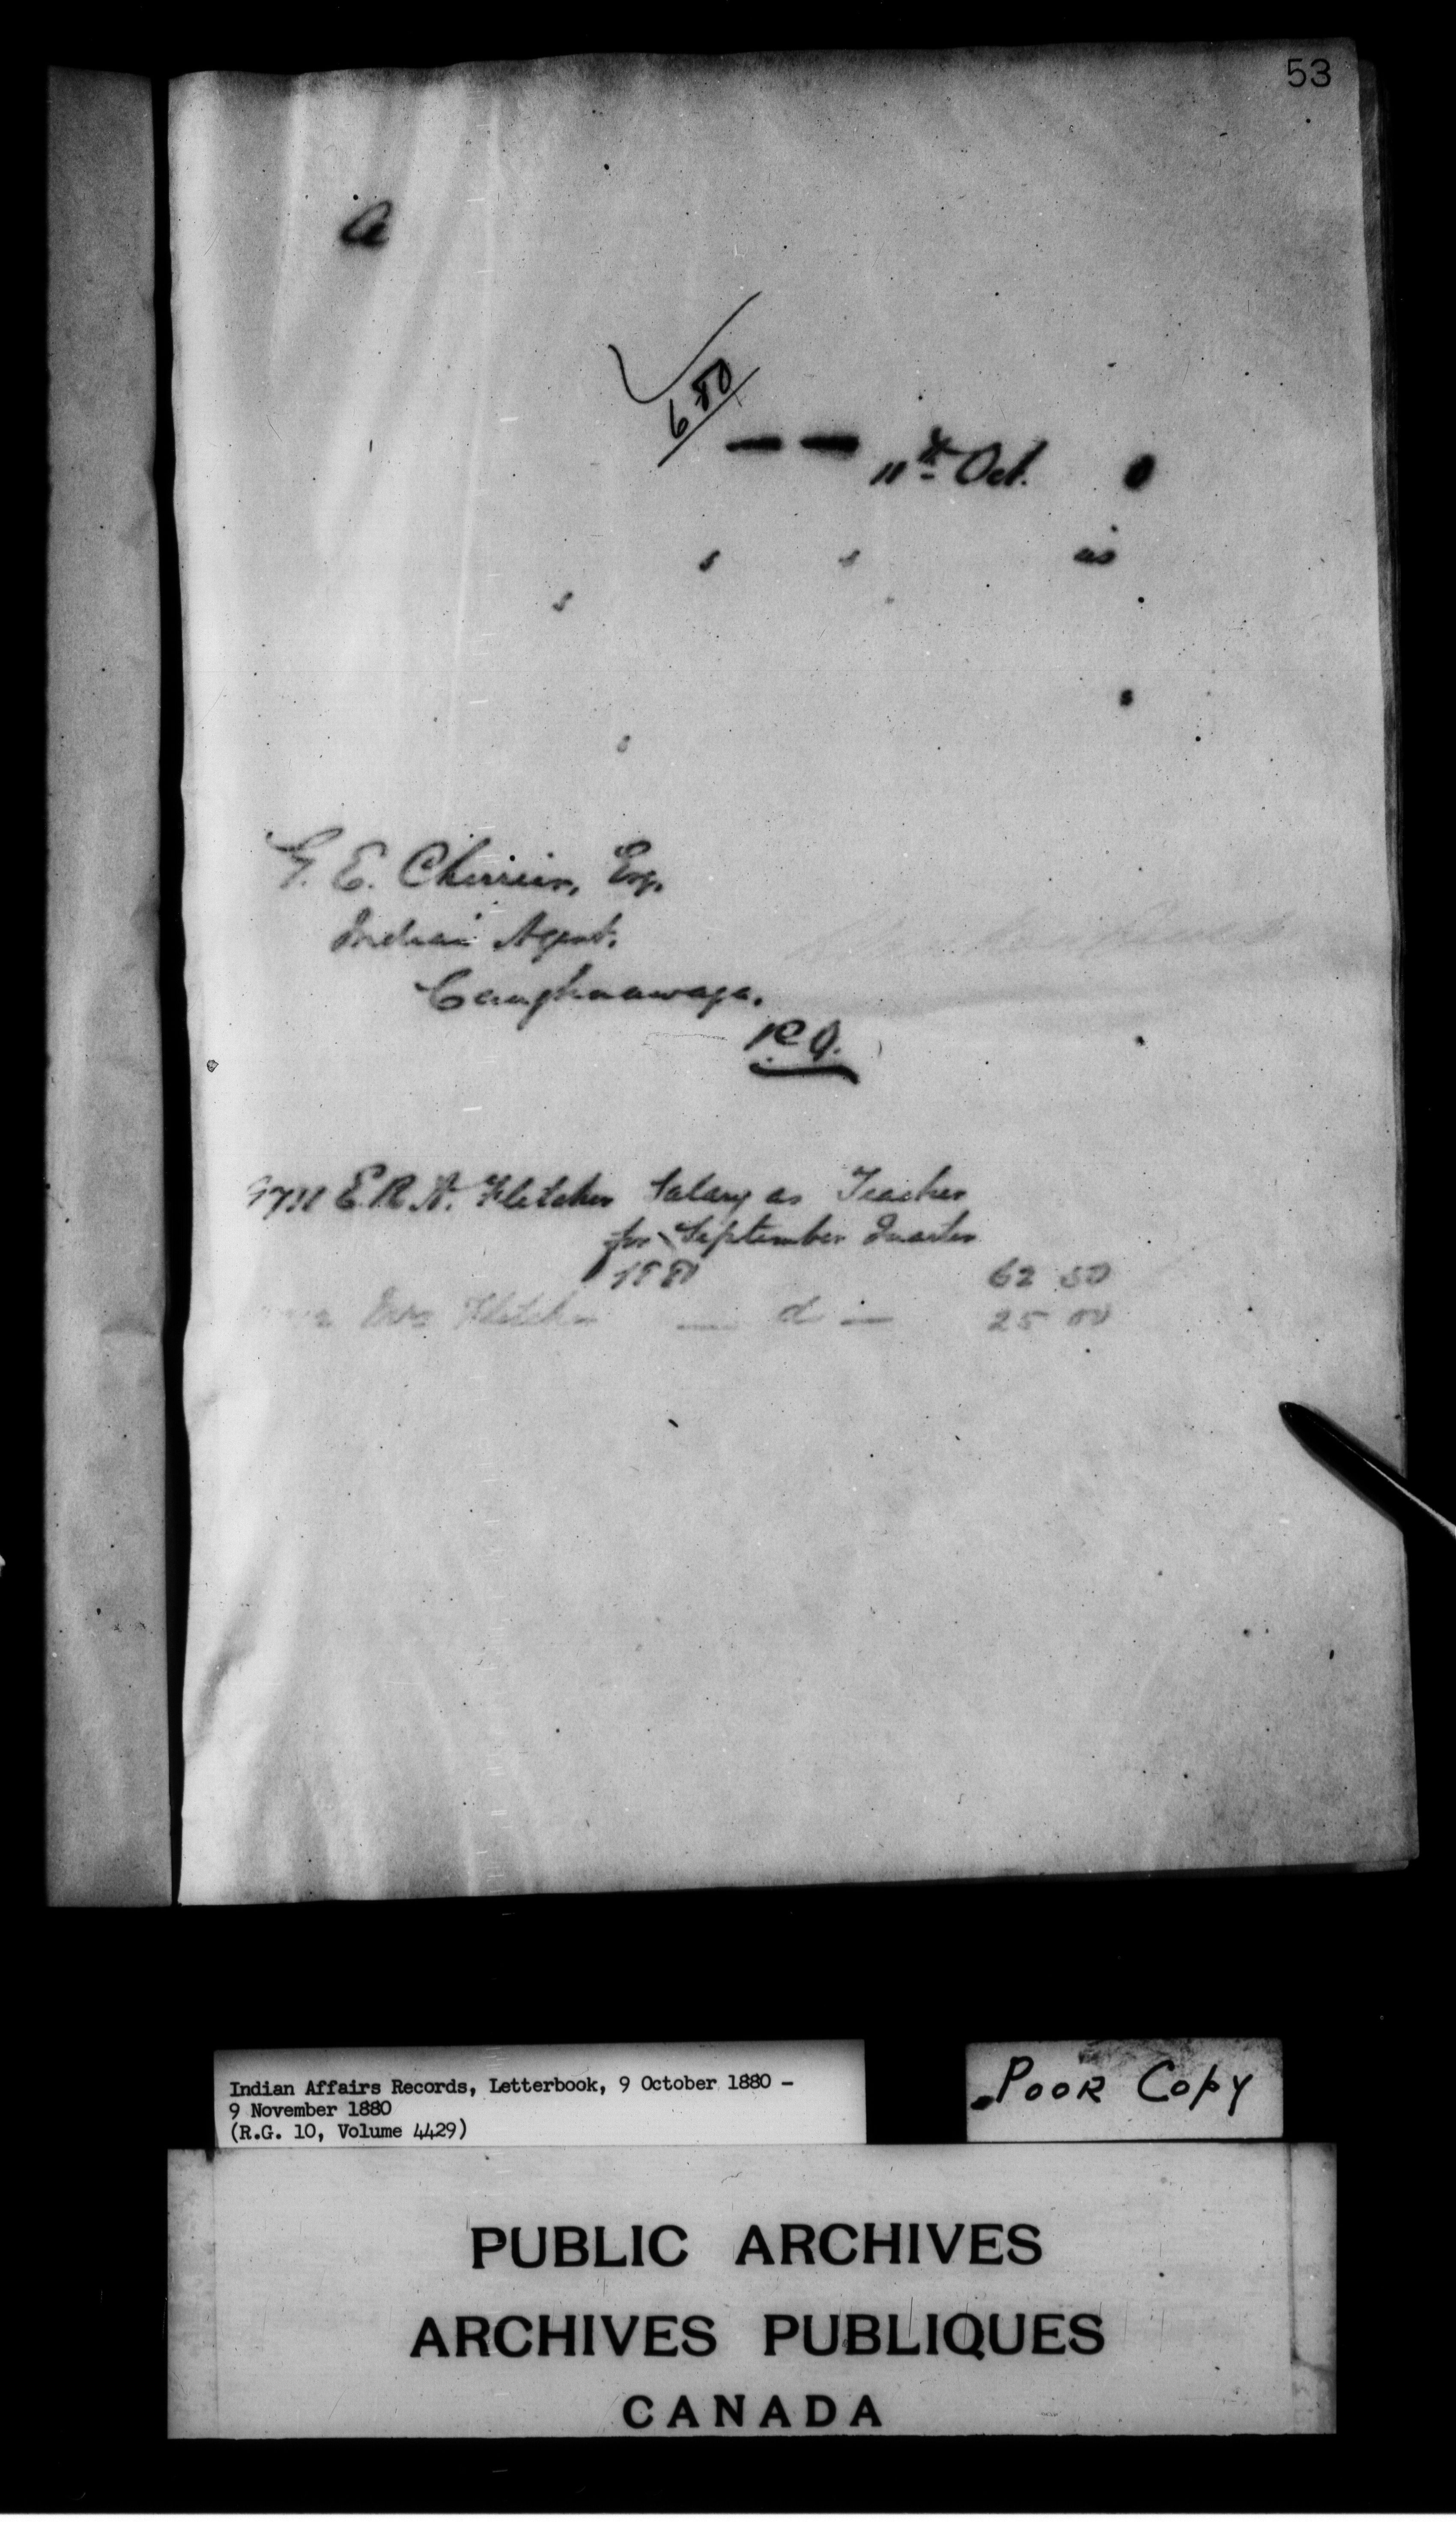 53
a
680
11th Oct. 0
s s is
s
s
s
G. E. Cherrier, Esq.
Indian Agent,
Caughnawaga.
P.Q.
E. R. A. Fletcher Salary as Teacher
for September Quarter
1880 62 50
Mrs Fletcher — do — 25 00
Indian Affairs Records, Letterbook, 9 October 1880 –
9 November 1880
(R.G. 10, Volume 4429)
Poor Copy
PUBLIC ARCHIVES
ARCHIVES PUBLIQUES
CANADA